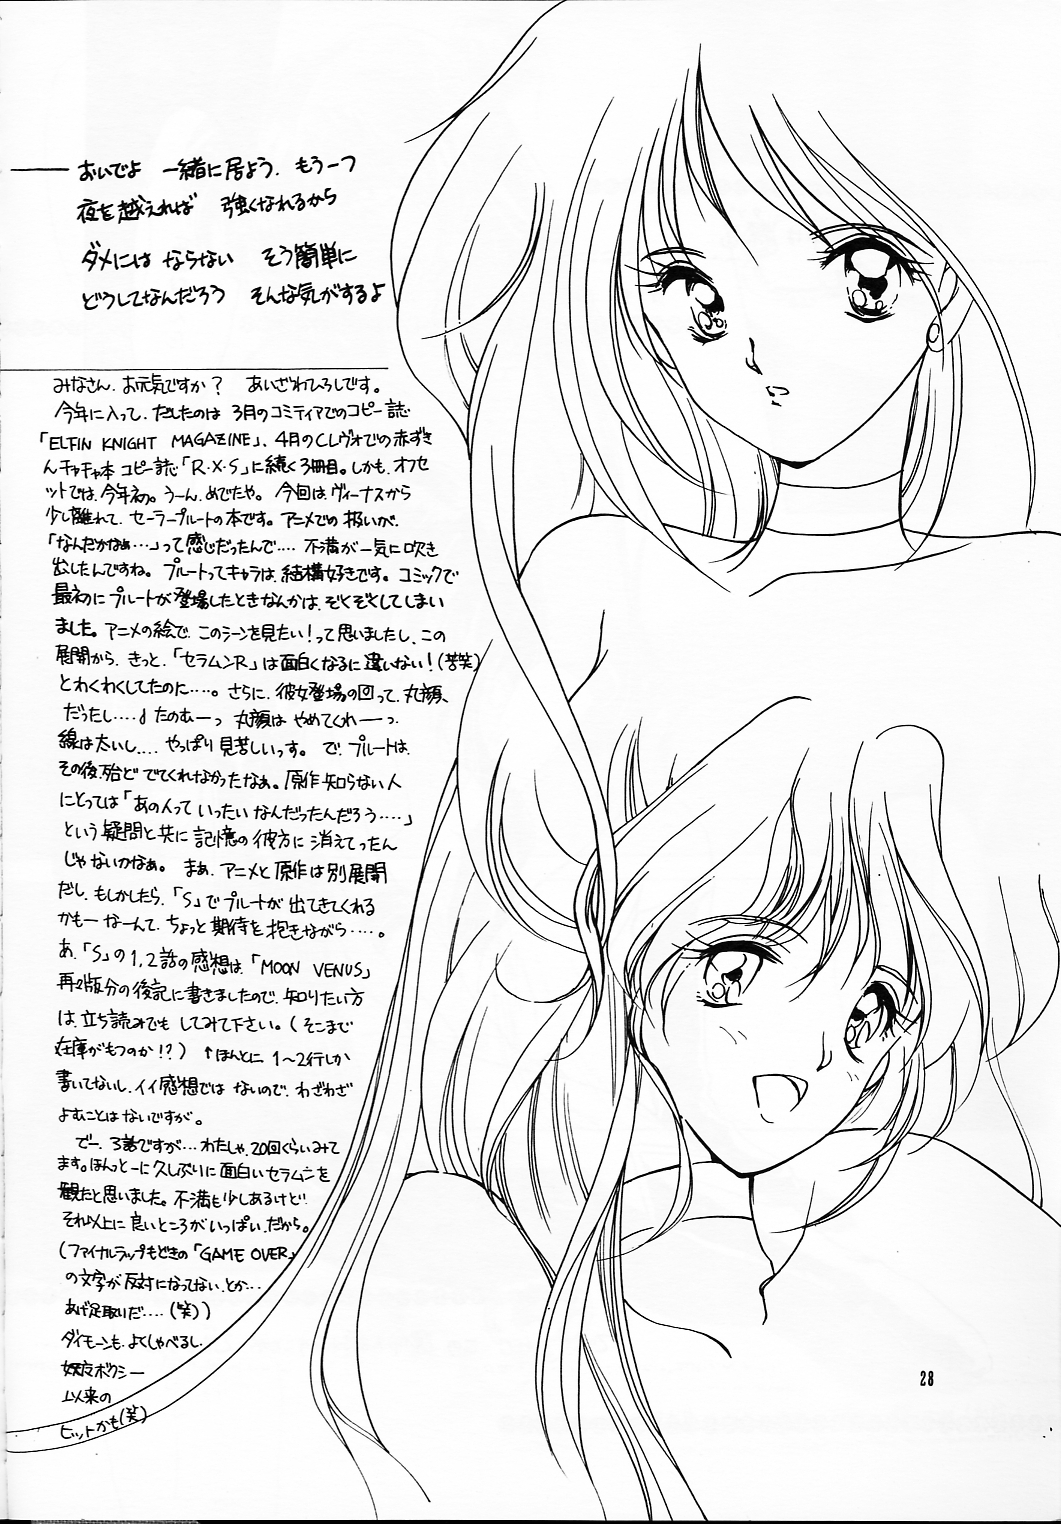 おいでよ 一緒に居よう. もう一つ
夜を越えれば 強くなれるから
ダメには ならない そう簡単に
どうしてなんだろう そんな気がするよ
みなさん、お元気ですか? あいざわひろしです。
今年に入って、だしたのは 3月のコミティアでのコピー誌
「ELFIN KNIGHT MAGAZINE」、4月のCレヴォでの赤ずき
んチャチャ本 コピー誌「R・X・S」に続く3冊目。しかも、オフセ
ットでは、今年初。うーん、めでたや。今回は、ヴィーナスから
少し離れて、セーラープルートの本です。アニメでの扱いが、
「なんだかなぁ…」って感じだったんで…. 不満が一気に吹き
出したんですね。プルートってキャラは、結構好きです。コミックで
最初にプルートが登場したときなんかは、ぞくぞくしてしまい
ました。アニメの絵で、このシーンを見たい!って思いましたし、この
展開から、きっと、「セラムンR」は面白くなるに違いない!(苦笑)
とわくわくしてたのに….。さらに、彼女登場の回って、丸顔、
だったし….♪たのむーっ 丸顔は やめてくれーーっ
線は太いし…. やっぱり見苦しいっす。で、プルートは、
その後殆ど でてくれなかったなぁ。原作知らない人
にとっては「あの人って いったい なんだったんだろう….」
という疑問と共に 記憶の彼方に 消えてったん
じゃないかなぁ。 まぁ、アニメと原作は別展開
だし、もしかしたら、「S」でプルートが 出てきてくれる
かもー なーんて、ちょっと期待を抱きながら….。
あ、「S」の1,2話の感想は、「MOON VENUS」
再版分の後記に書きましたので、知りたい方
は、立ち読みでも してみて下さい。(そこまで
在庫がもつのか!?) ↑ほんとに 1~2行しか
書いてないし、イイ感想では ないので、わざわざ
よむことはないですが。
でー、3話ですが…わたしゃ、20回くらいみて
ます。ほんっとーに久しぶりに面白いセラムンを
観たと思いました。不満も少しあるけど
それ以上に 良いところがいっぱい、だから。
(ファイナルラップもどきの「GAME OVER」
の文字が 反対になってない、とか…
あげ足取りだ….(笑))
ダイモーンも、よくしゃべるし、
妖魔ボクシー
以来の
ヒットかも(笑)
28